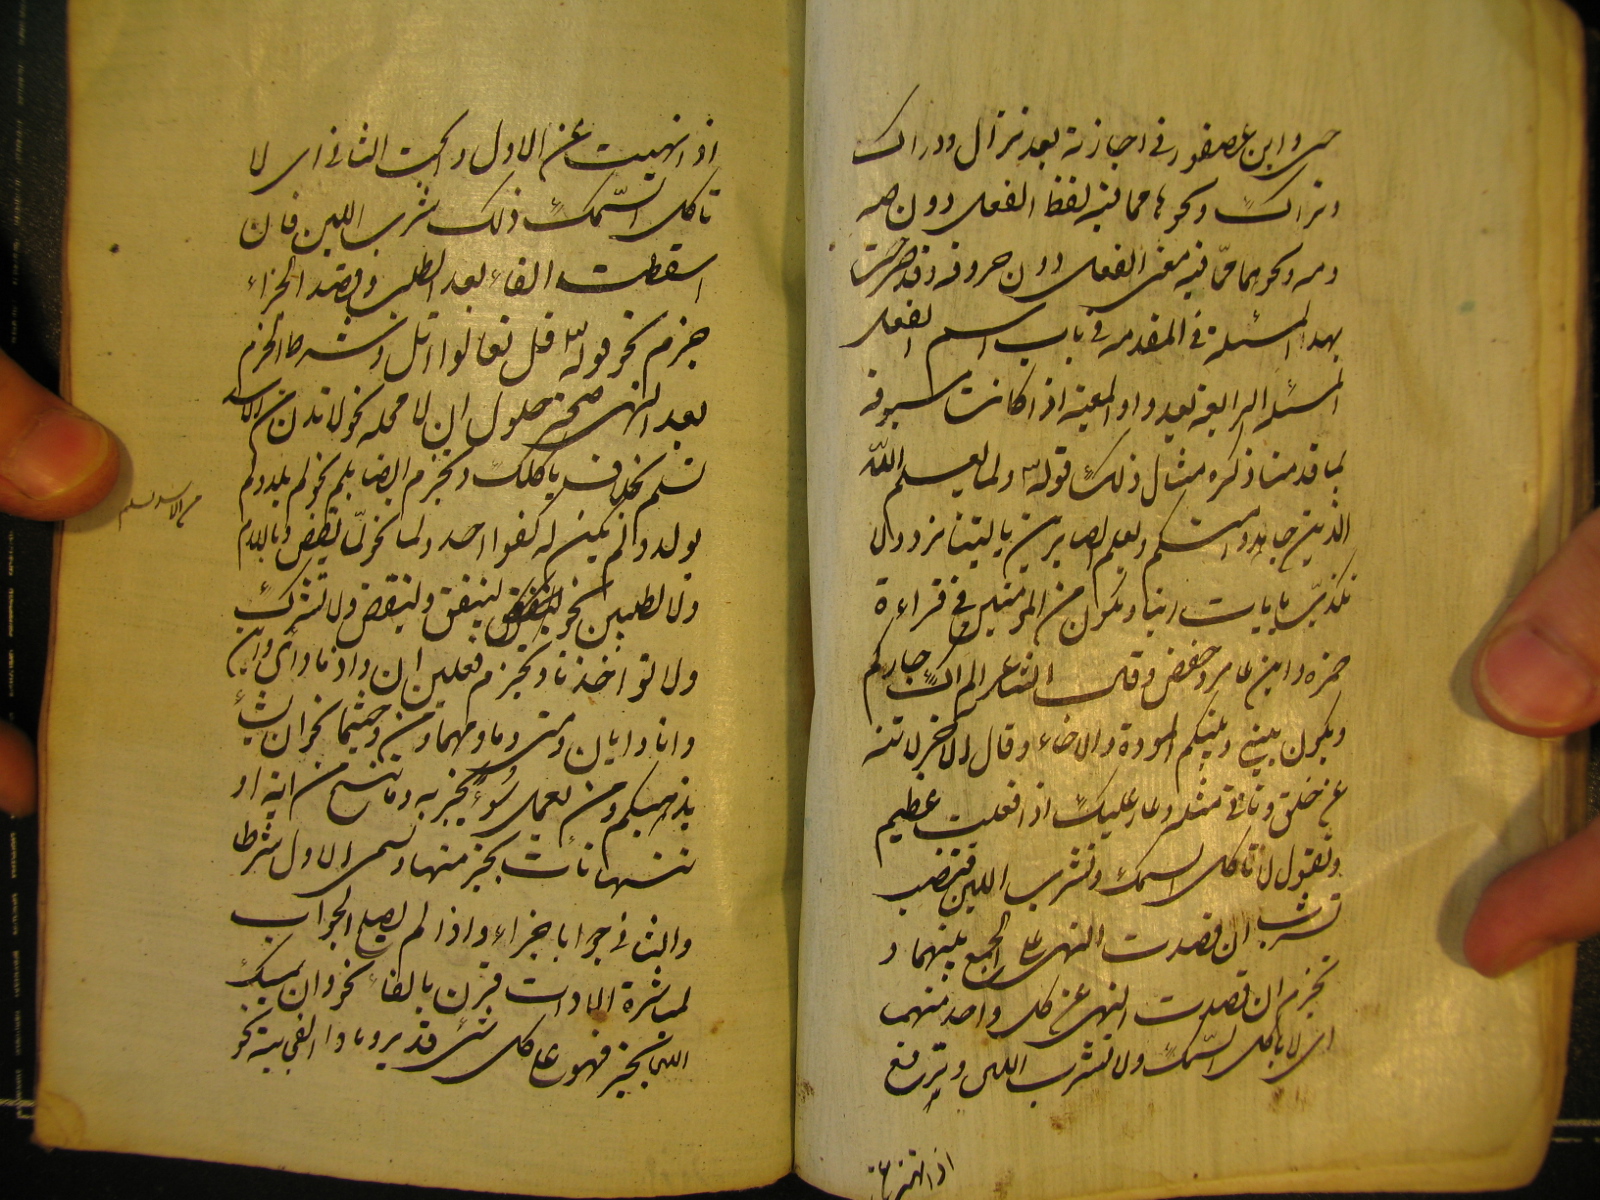 جنى وابن عصفور فى اجازته بعد نزال ودراك
وتراك ونحوها مما فيه لفظ الفعل دون صه
ومه ونحوهما ممّا فيه معنى الفعل دون حروفه وقد صرحت
بهذه المسئلة فى المقدمه فى باب اسم الفعل
المسئله الرابعه بعد واو المعيه اذا كانت مسبوقه
بما قدمنا ذكره مثال ذلك قوله ولما يعلم اللّه
الذين جاهدوا منكم ويعلم الصابرين ياليتنا نرد ولا
نكذب بايات ربنا ونكون من المومنين فى قراءة
حمزه وابن عامر وحفص وقال الشاعر الم اك جاركم
ويكون بينى وبينكم المودة والاخاء وقال الاخر لا تنه
عن خلق وتاتى مثله عار عليك اذا فعلت عظيم
وتقول لا تاكل السمك وتشرب اللبن فتنصب
تشرب ان قصدت النهى عن الجمع بينهما و
تجزم ان قصدت النهى عن كل واحد منهما
اى لا تاكل السّمك ولا تشرب اللبن وترفع
اذا نهيت عن
اذا نهيت عن الاول وابحت الثانى اى لا
تاكل السّمك ذلك شرب اللبن فان
اسقطت الفاء بعد الطلب وقصد الجزاء
جزم نحو قوله قل تعالوا اتل وشرط الجزم
بعد النهى صحة حلول ان لا محله نحو لا تدن من الاسد
تسلم بخلاف ياكلك وتجزم ايضا بلم نحو لم يلد ولم
يولد ولم يكن له كفوا احد ولما نحو لمّا يقض وباللام
ولا لطلبين نحو لينفق لينفق وليقض ولا تشرك
ولا تواخذنا وتجزم فعلين ان واذما واى واين
وانا وايان ومتى وما ومهما ومن وحيثما نحو ان يشأ
يذهبكم ومن يعمل سُوءً يجز به وما ننسخ من اية او
ننسها نات بخير منها ويسمى الاول شرطا
والثانى جوابا وجزاء واذا لم يصلح الجواب
لمباشرة الاداة قرن بالفاء نحو وان يمسك
الله بخير فهو على كل شئ قدير وباذا الفجائية نحو
من الاسد تسلم